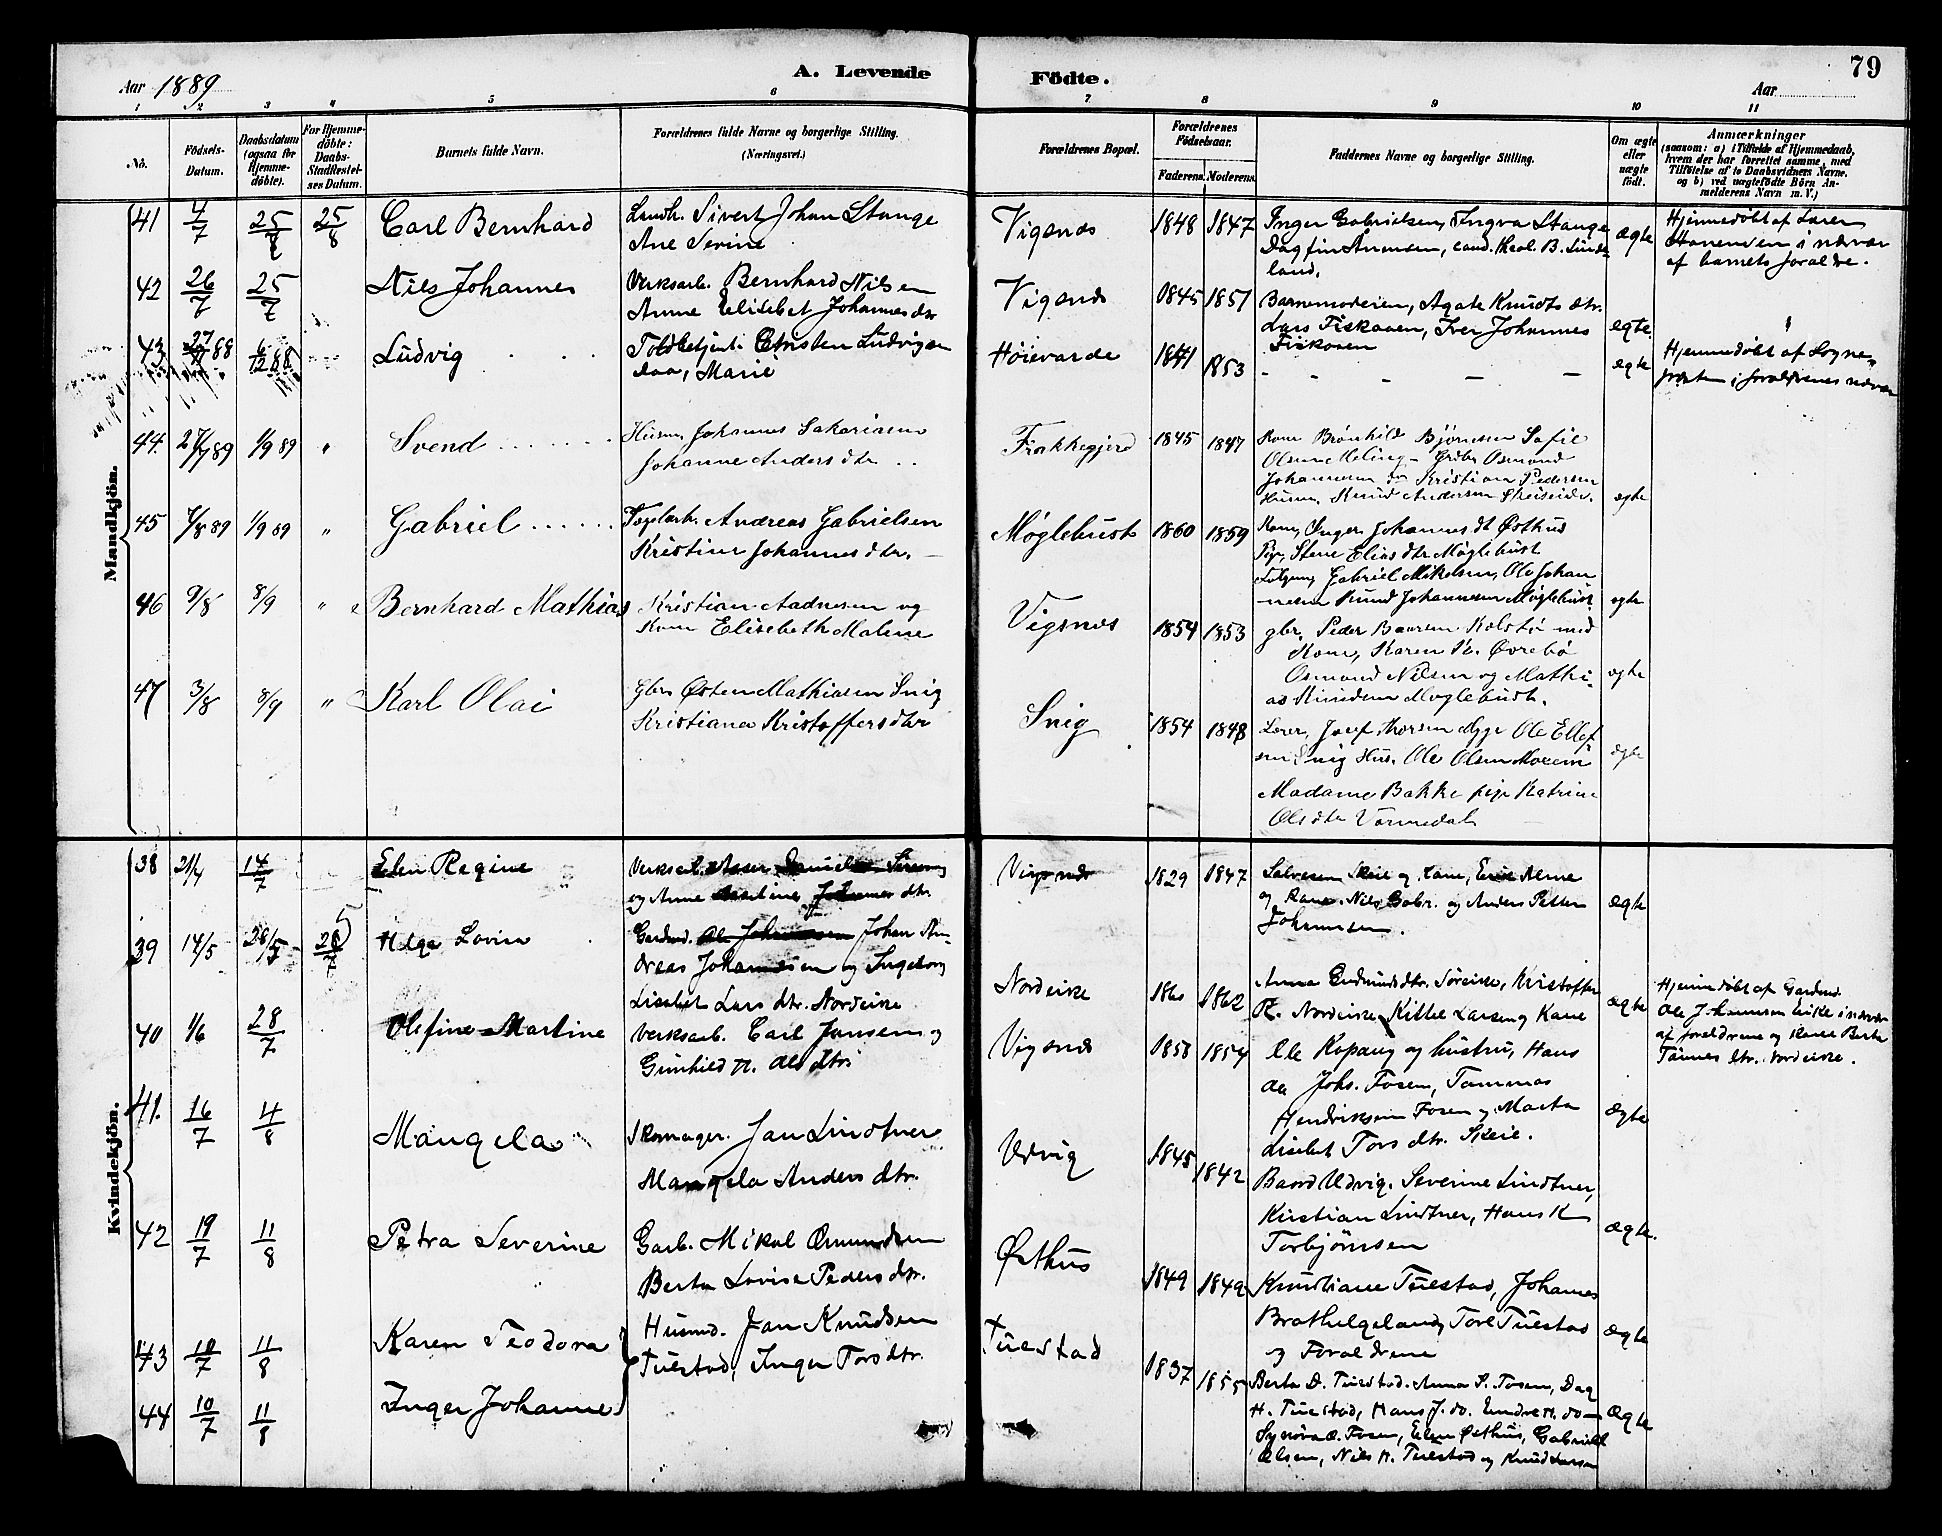 79
Aar 1889
A. Levende
Födte.
Aar
1 2 3 4 5 6 7 8 9 10 11
No.
Födsels-Datum.
Daabsdatum (ogsaa for Hjemme-döbte).
For Hjemme-döbte: Daabs-Stadfæstel-ses Datum.
Barnets fulde Navn.
Forældrenes fulde Navne og borgerlige Stilling. (Næringsvei.)
Forældrenes Bopæl.
Forældrenes Födselsaar.
Faderens. Moderens.
Faddernes Navne og borgerlige Stilling.
Om ægte eller uægte födt.
Anmærkninger
(saasom: a) i Tilfælde af Hjemmedaab,
hvem der har forrettet samme, med
Tilföielse af to Daabsvidners Navne.
og b) ved uægtefödte Börn An-
melderens Navn m. V.)
Mandkjön.
41 4/7 25/8 25/8 Carl Bernhard
Sivert Johan Stange
Ane Serine
Vigsnæs 1848 1847
Inger Gabrielsen, Ingva Stange
Dagfin Amundsen, cand. theol. B. Linde-
land.
ægte
Hjemmedöbt af Lærer
i nærvær
af barnets forældre.
42 26/7 25/7 Nils Johannes
Verksarb. Bernhard Nilsen
Anne Elisebet Johannesdtr
Vigsnæs 1845 1851
Barnemoderen, Agate Knudtsdtr.
Lars Fiskaaen, Iver Johannes
Fiskaaen
egte.
43 88 6/12 88 Ludvig
Toldbetjent Christen Ludvigsen
Daa, Marie
Höievarde 1841 1853
- - - - -
egte
Hjemmedöbt af Sogne-
præsten i forældrenes nærvær
44. 27/7 89 1/9 89 " Svend
Husm. Johannes Sakariasen
Johanne Andersdtr
Frakkegjerd 1845 1847
Kone Brönhild Björnsen Sofie
Olsen Meling - Osmund
Johannesen Kristian Pedersen
Husm. Knud Andersen Skeiseide.
ægte
45 7/8 89 1/9 89 " Gabriel
Andreas Gabrielsen
Kristine Johannesdtr.
Möglebust 1860 1859
Kone, Inger Johannesdt Østhus
Pige, Stene Eliasdtr Möglebust
Gabriel Mikelsen, Ole Johan-
nesen Knud Johannesen Möglebust
ægte
46 9/8 8/9 " Bernhard Mathias
Kristian Aadnesen og
Kone Elisebeth Malene
Vigsnæs 1854 1853
gbr. Peder Baarsen Kolstö med
Kone, Karen K. Øvrebö
Osmund Nilsen og Mathi-
as Knudsen Moglebust.
ægte
47 3/8 8/9 " Karl Olai
Gbr. Østen Mathiasen Snig
Kristiane Kristoffersdtr
Snig 1854 1848
Lærer, Josef Thorsen Myge Ole Ellef
sen Snig Hus. Ole Olsen
Madame Bakke pige Katrine
Olsdtr Vormedal
ægte
Kvindekjön.
38 21/4 14/7 Elen Regine
Verksarb. Asser
og Anne dtr.
Vigsnæs 1829 1847
Salvesen Skeie og Kone,
og Kone Nils Gabr. og Anders Petter
Johannsen.
ægte
39 14/5 28/5 28/7 Helga Lovise
Gardmd. Johan An-
dreas Johannesen og Ingeborg
Liseb[et] Larsdtr. Nordvike
Nordvike 1860 1862
Anna Gudmundsdtr. Söreike, Kristoffer
R. Nordvike Kittel Larsen og Kone
ægte
Hjemmedöbt af Gardmd.
Ole Johannsen i nærvær
af forældrene og Kone Berta
Tönnesdtr. Nordvike.
40 1/6 28/7 Olefine Martine
Verksarb. Carl Jansen og
Gunhild N. Olsdtr.
Vigsnæs 1858 1854
Ole Kopang og hustru, Hans
Johs. Fosen, Tommas
Hendriksen Fosen og Marta
Lisebet Torsdtr. Skeie.
ægte
41. 16/7 4/8 Mangela
Skomager. Jan Lindtner
Mangela Andersdtr.
Udvig 1845 1842
Baard Udvig. Severine Lindtner,
Kristian Lindtner, Hans K
Torbjörnsen
ægte.
42 19/7 11/8 Petra Severine
Garb. Mikal Osmundsen
Berta Lovise Pedersdtr.
Østhus 1849 1849
Knudtiane Tuestad, Johannes
Brathelgeland, Tore Tuestad
og Forældrene
ægte
43 10/7 11/8 Karen Teodora
Husmd. Jan Knudsen
Tuestad, Inger Torsdtr.
Tuestad 1837 1855
Berta D. Tuestad. Anna S. Fosen, Dag
H. Tuestad, Hans J. do. Endre H. do
Synöva Fosen, Elen Østhus, Gabriell
Olsen, Nils H. Tuestad og Knud Larsen
ægte
44 10/7 11/8 Inger Johanne